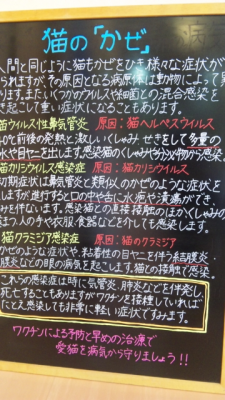 猫の「かぜ」
人間と同じように猫もかぜをひき、様々な症状が
られますが、その原因となる病原体は動物によって異
ります。また、いくつかのウイルスや細菌との混合感染を
き起こして重い症状になることもあります。
猫ウイルス性鼻気管炎 原因:猫ヘルペスウイルス
℃前後の発熱と激しいくしゃみ、せきをして多量の
水や目ヤニを出します。感染猫のくしゃみや分泌物から感染。
猫カリシウイルス感染症 原因:猫カリシウイルス
初期症状は鼻気管炎と類似のかぜのような症状を
しますが、進行すると口の中や舌に水疱や潰瘍ができ、
みを伴います。感染猫との直接接触のほか、くしゃみの
ほか、人の手や衣服、食器などを介しても感染します。
猫クラミジア感染症 原因:猫のクラミジア
かぜのような症状や、粘着性の目ヤニを伴う結膜炎、
膜炎などの眼の病気を起こします。猫との接触で感染。
これらの感染症は時に気管炎、肺炎などを伴発し
死亡することもありますがワクチンを接種していれば
たとえ感染しても非常に軽い症状ですみます。
ワクチンによる予防と早めの治療で
愛猫を病気から守りましょう!!